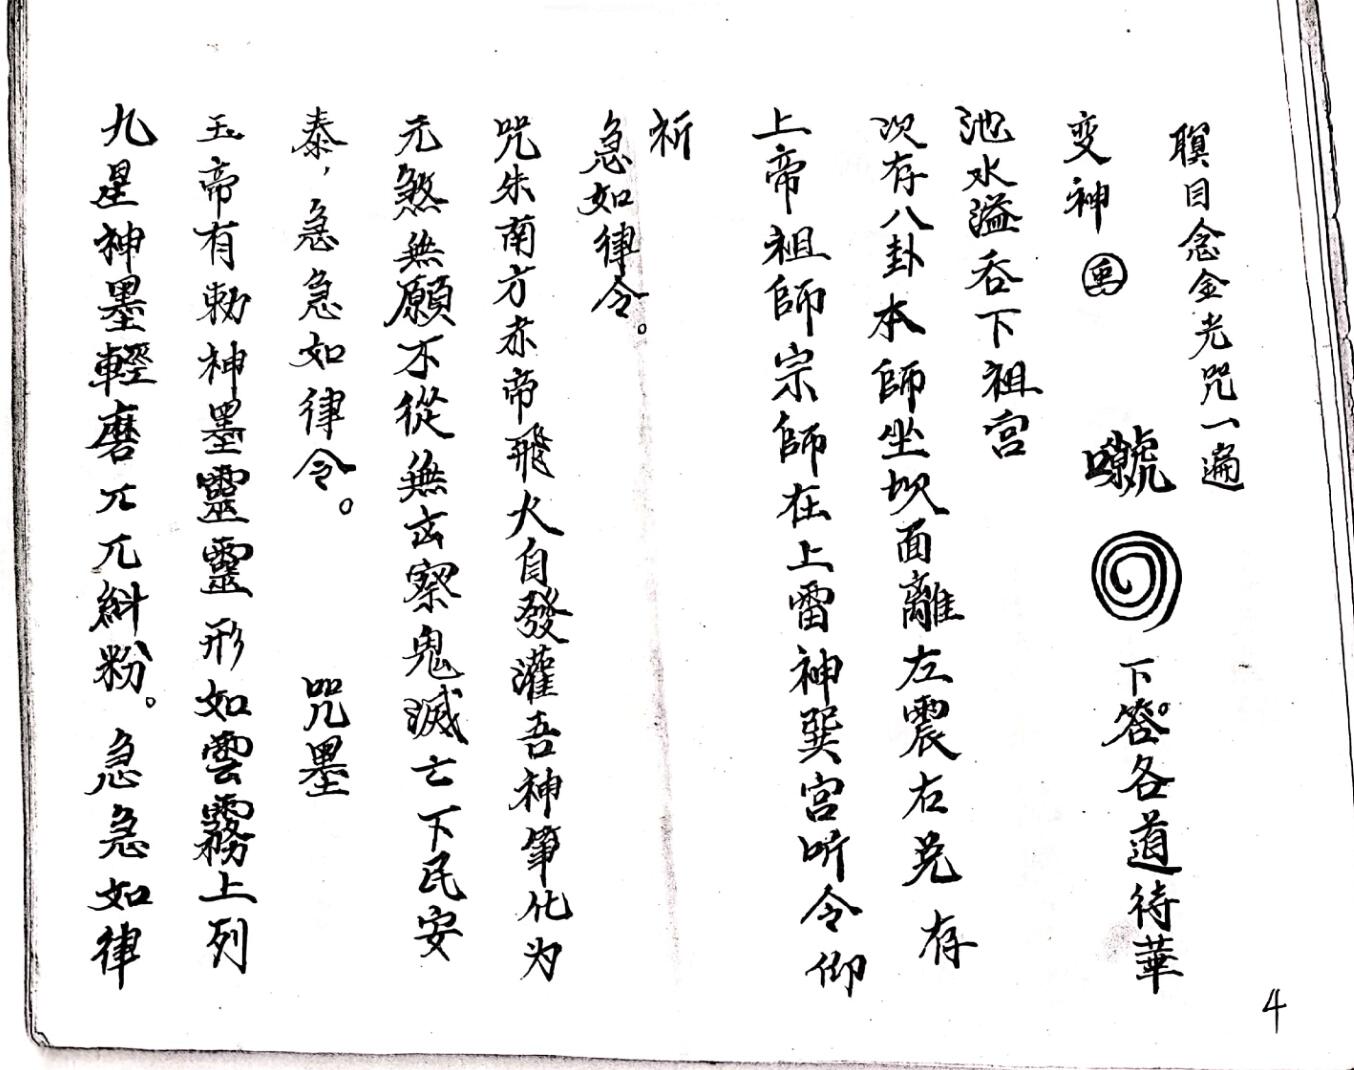 瞑目念金光咒一遍
变神 下答各道待華
池水溢吞下祖宫
次存八卦本師坐坎面離左震右兑存
上帝祖師宗師在上雷神巽宫听令仰
祈
急如律令。
咒朱南方赤帝飛火自發灌吾神筆化为
元煞無願不從無玄察鬼滅亡下民安
泰，急急如律令。 咒墨
玉帝有勅神墨靈靈形如雲霧上列
九星神墨輕磨丌兀糾粉。急急如律
4